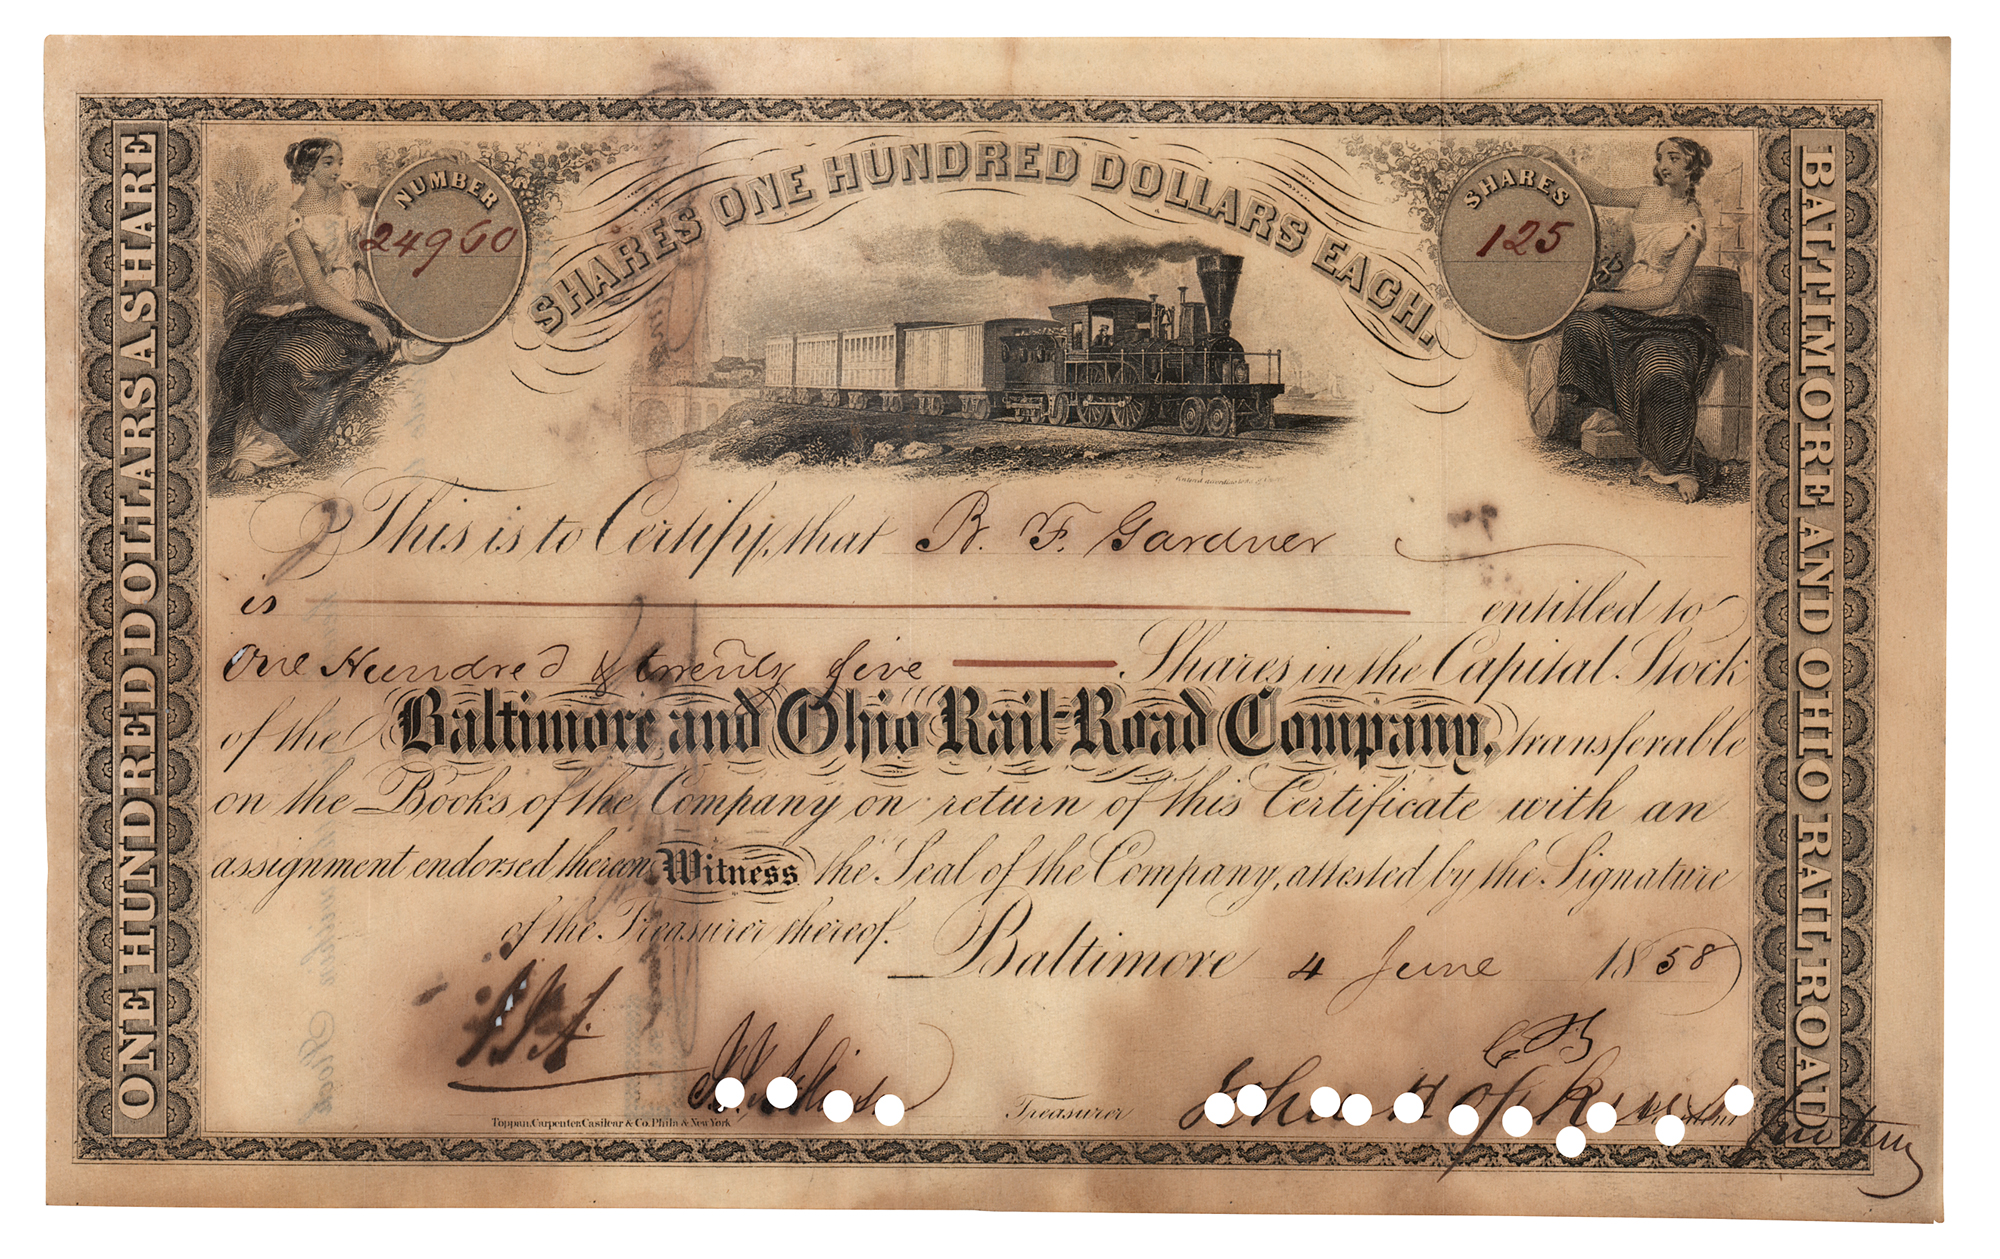 ONE HUNDRED DOLLARS A SHARE
NUMBER
24960
SHARES ONE HUNDRED DOLLARS EACH.
SHARES
125
BALTIMORE AND OHIO RAIL ROAD
This is to Certify, that B. F. Gardner
is entitled to
One Hundred & twenty five Shares in the Capital Stock
of the Baltimore and Ohio Rail-Road Company, transferable
on the Books of the Company on return of this Certificate with an
assignment endorsed thereon Witness the Seal of the Company, attested by the Signature
of the Treasurer thereof.
Baltimore 4 June 1858
Treasurer
John Hopkins
Toppan, Carpenter, Casilear & Co. Phila & New York